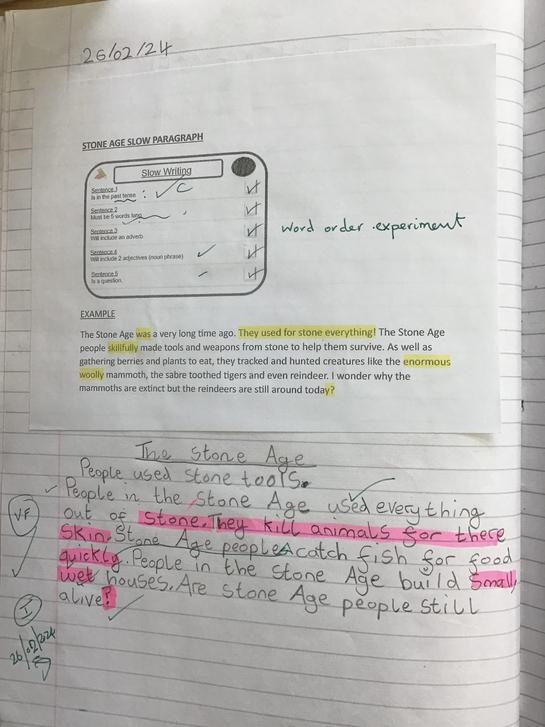 26/02/24
STONE AGE SLOW PARAGRAPH
Slow Writing
Sentence 1
Is in the past tense
Sentence 2
Must be 5 words long
Sentence 3
Will include an adverb
Sentence 4
Will include 2 adjectives (noun phrase)
Sentence 5
Is a question.
word order experiment
EXAMPLE
The Stone Age was a very long time ago. They used for stone everything! The Stone Age
people skillfully made tools and weapons from stone to help them survive. As well as
gathering berries and plants to eat, they tracked and hunted creatures like the enormous
woolly mammoth, the sabre toothed tigers and even reindeer. I wonder why the
mammoths are extinct but the reindeers are still around today?
The Stone Age
People used stone tools.
People in the Stone Age used everything
out of stone. They kill animals for there
skin. Stone Age people catch fish for food
quickly. People in the stone Age build small,
wet houses. Are Stone Age people still
alive?
VF
I
26/02/2024